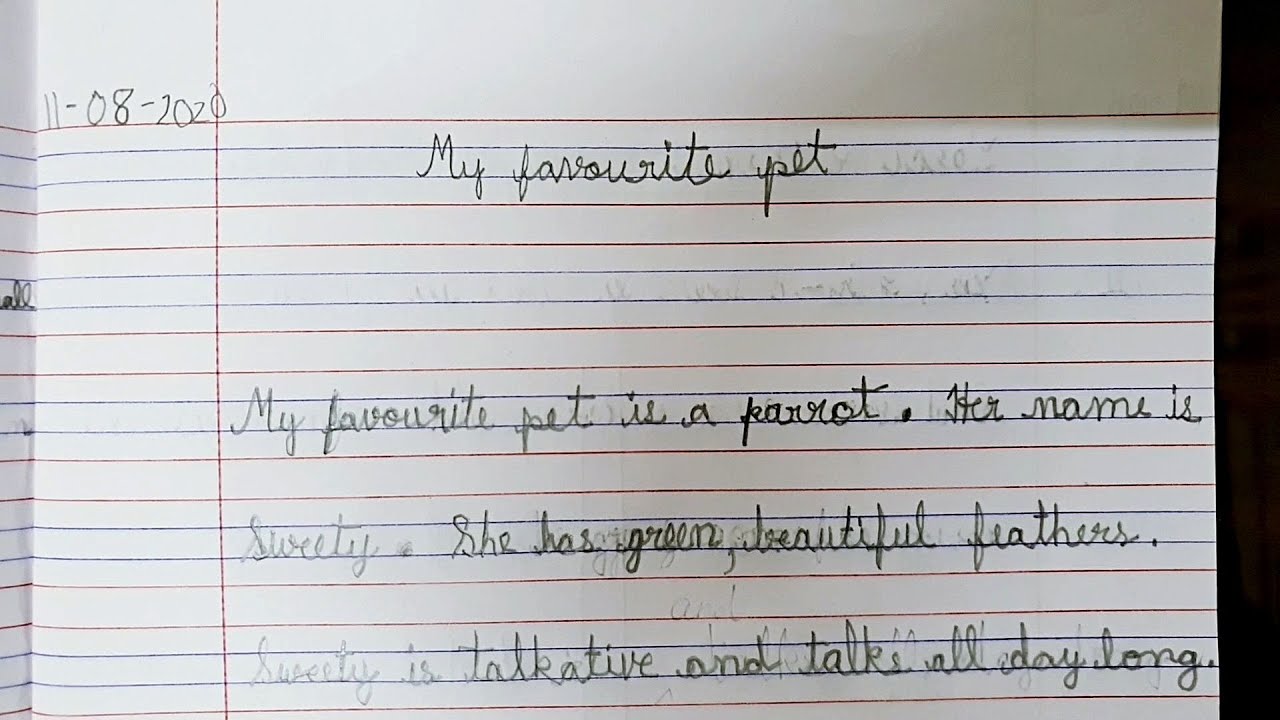 11-08-2020
My favourite pet
all
My favourite pet is a parrot. Her name is
Sweety. She has green, beautiful feathers.
and
Sweety is talkative and talks all day long.